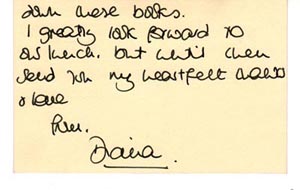 these books.
I greatly look forward to
our lunch. but until then
send you my heartfelt thanks
& love
from.
Diana.